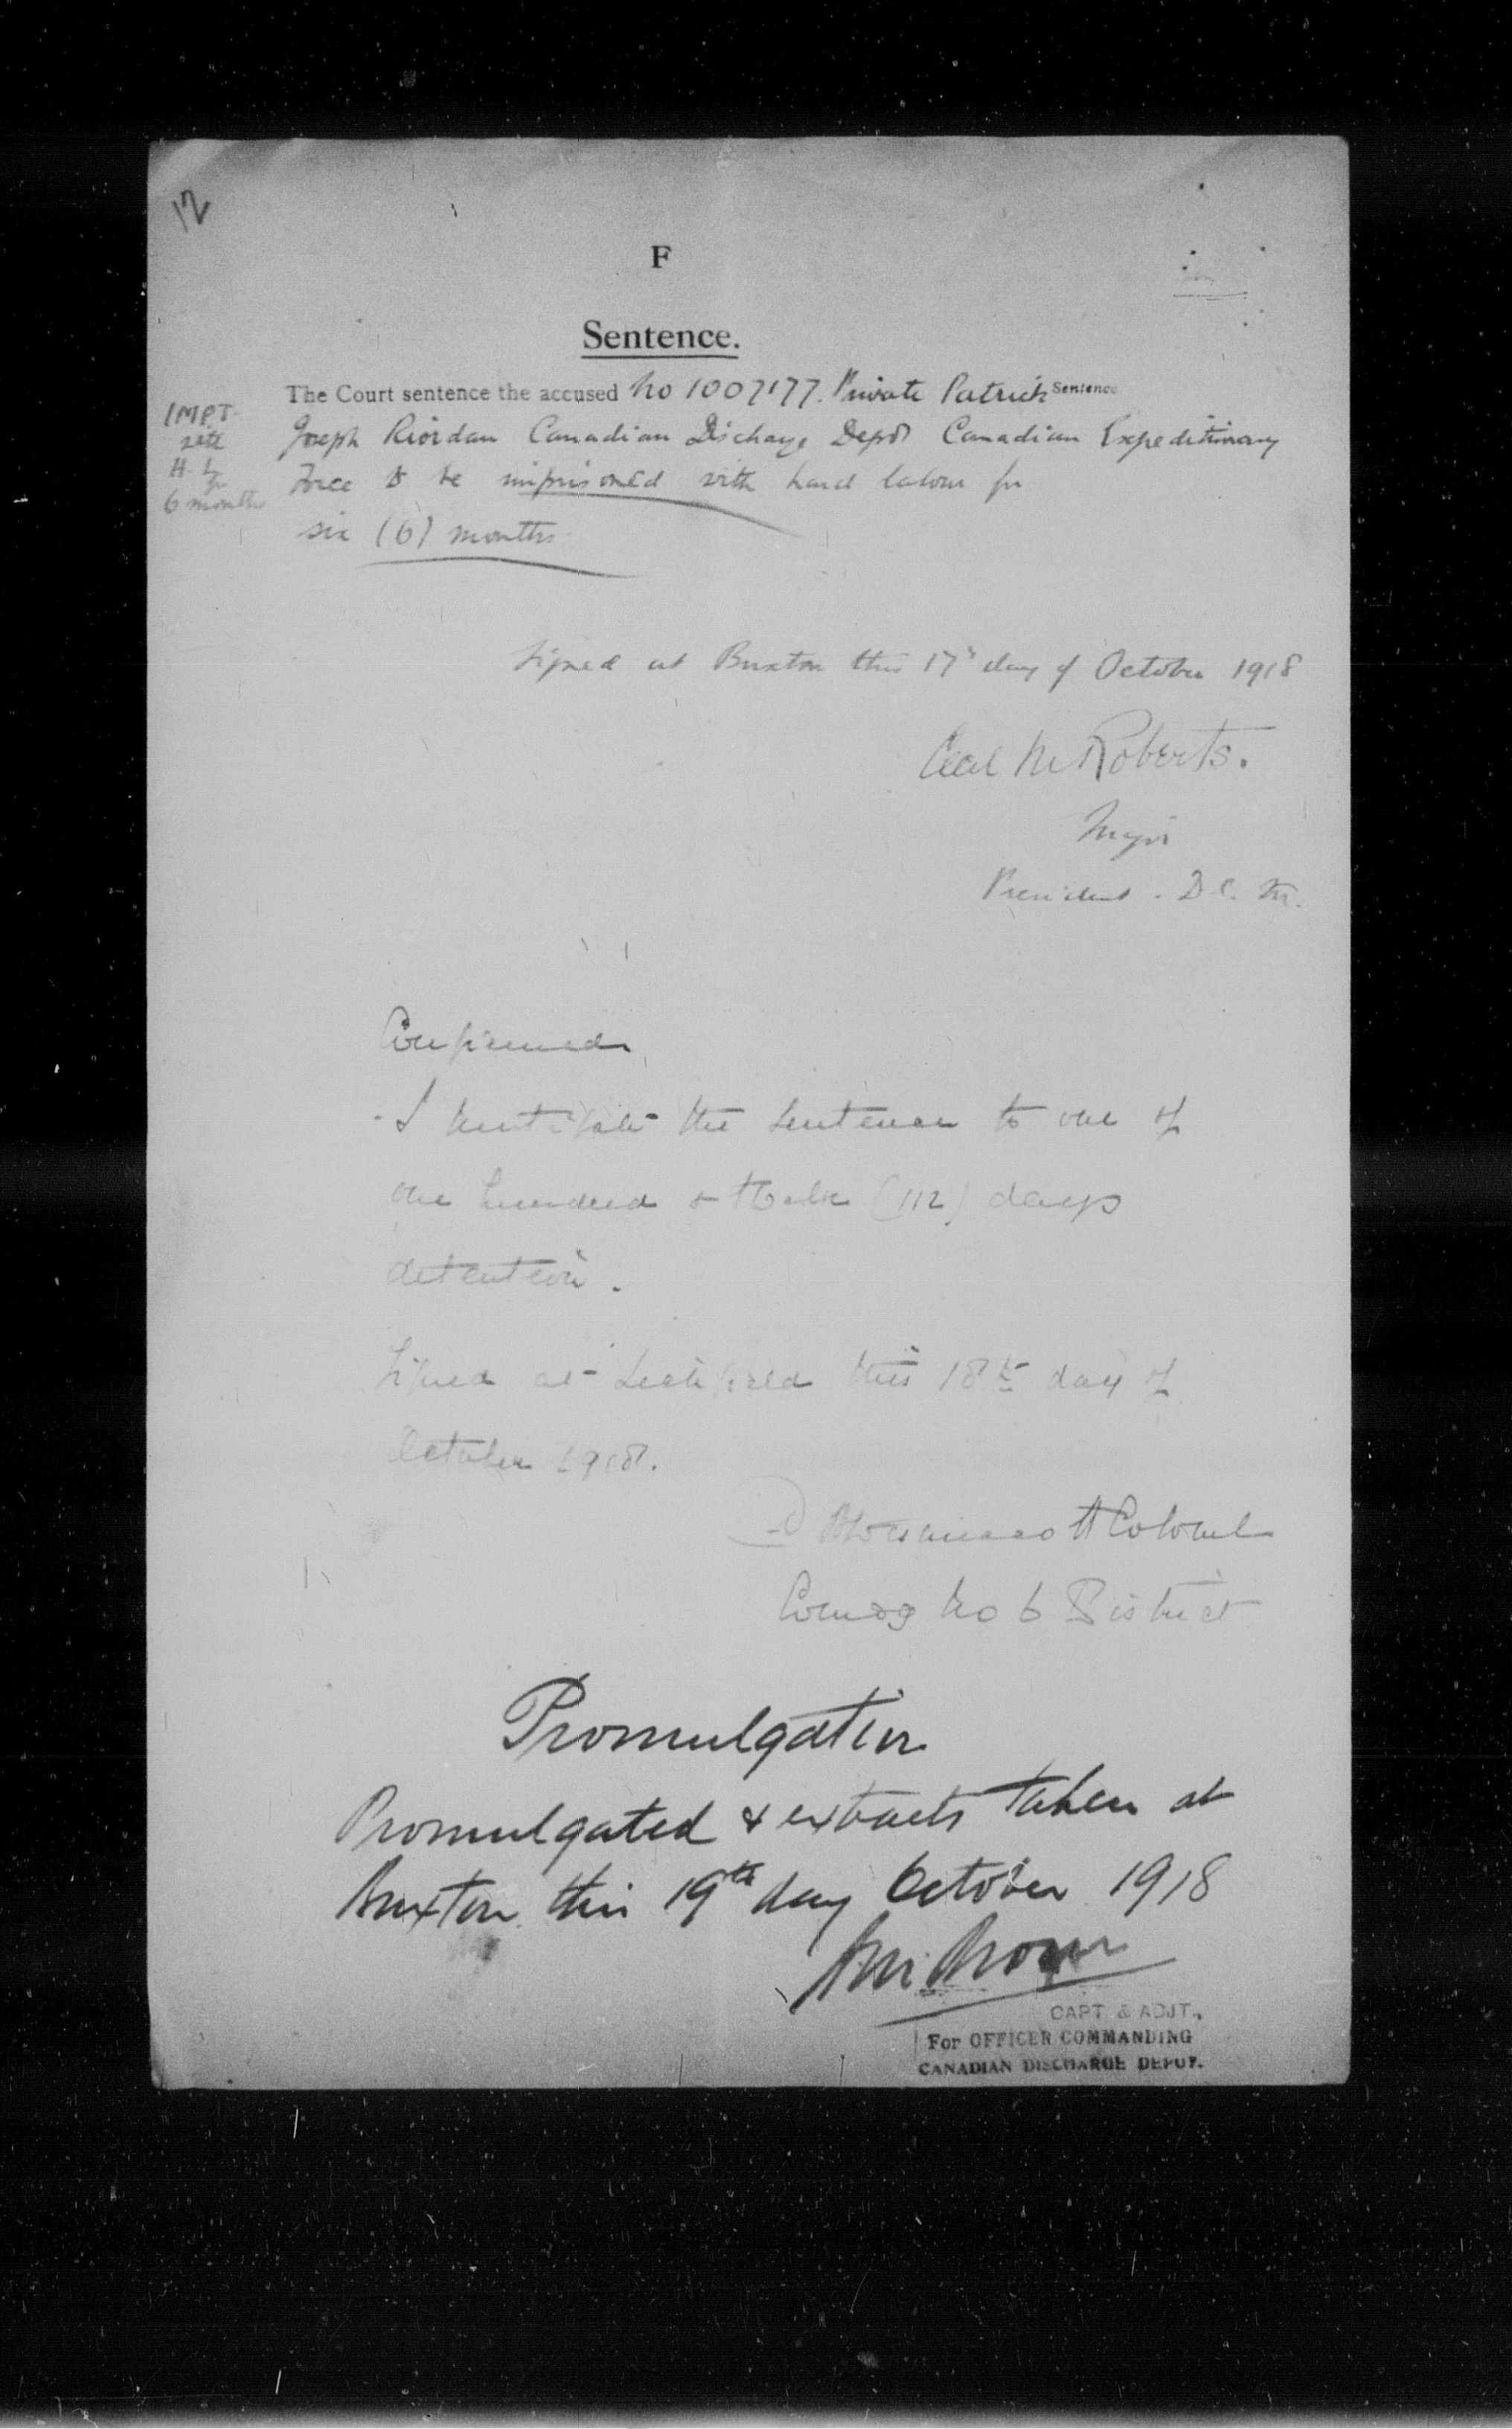 12
F
Sentence.
The Court sentence the accused No 1007177. Private Patrick Sentence
IMPT.
with
H. L.
for
6 months
Joseph Riordan Canadian Discharge Depot Canadian Expeditionary
Force to be imprisoned with hard labour for
six (6) months
Signed at Buxton this 17th day of October 1918
Cecil M Roberts.
Major
President. D.C.M.
Confirmed
I mitigate the sentence to one of
one hundred & twelve (112) days
detention.
Signed at Lichfield this 18th day of
October 1918.
Lt Colonel
Comdg No 6 District
Promulgation
Promulgated & extracts taken at
Buxton this 19th day October 1918
CAPT. & ADJT.,
For OFFICER COMMANDING
CANADIAN DISCHARGE DEPOT.